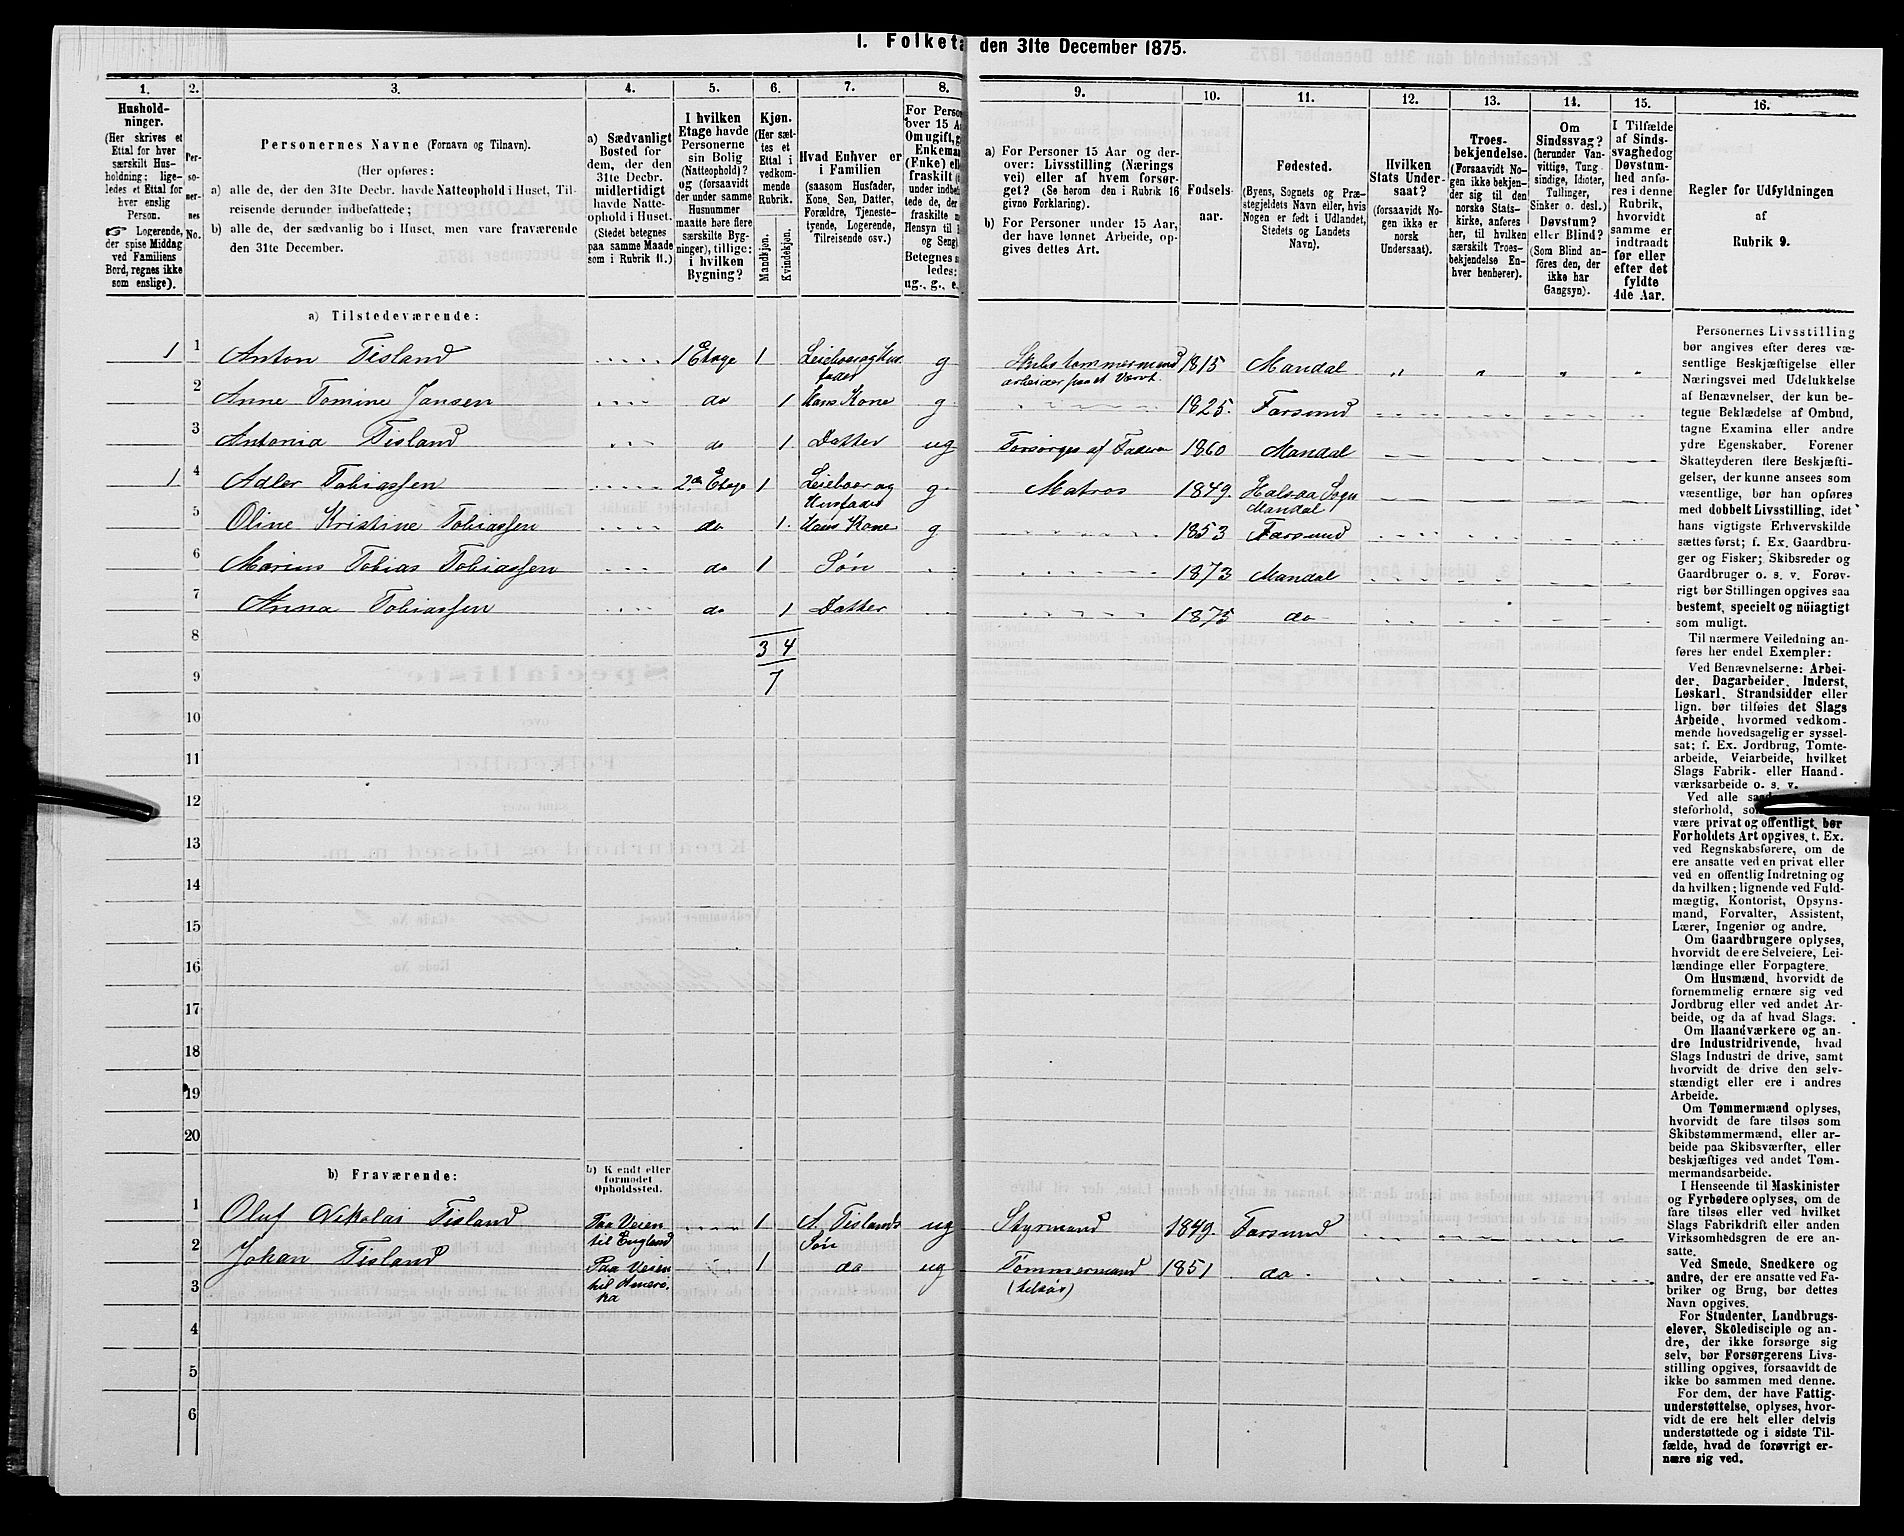 1. Folketa den 31te December 1875.
1. 2. 3. 4. 5. 6. 7. 8. 9. 10. 11. 12. 13. 14. 15. 16.
Hushold-
ninger.
(Her skrives et
Ettal for hver
særskilt Hus-
holdning; lige-
ledes et Ettal for
hver enslig
Person.
☞ Logerende,
der spise Middag
ved Familiens
Bord, regnes ikke
som enslige).
Per-
so-
ner-
nes
No.
Personernes Navne (Fornavn og Tilnavn).
(Her opføres:
a) alle de, der den 31te Decbr. havde Natteophold i Huset, Til-
reisende derunder indbefattede;
b) alle de, der sædvanlig bo i Huset, men vare fraværende
den 31te December.
a) Sædvanligt
Bosted for
dem, der den
31te Decbr.
midlertidigt
havde Natte-
ophold i Huset.
(Stedet betegnes
paa samme Maade
som i Rubrik 11.)
I hvilken
Etage havde
Personerne
sin Bolig
(Natteophold)?
og (forsaavidt
der under samme
Husnummer
maatte høre flere
særskilte Byg-
ninger), tillige:
i hvilken
Bygning?
Kjøn.
(Her sæt-
tes et
Ettal i
vedkom-
mende
Rubrik.
Mandkjøn.
Kvindekjøn.
Hvad Enhver er
i Familien
(saasom Husfader,
Kone, Søn, Datter,
Forældre, Tjeneste-
tyende, Logerende,
Tilreisende osv.)
For Perso
over 15 A
Om ugift, g
Enkema
(Fnke) ell
fraskilt (
under indbe
tede de, der
fraskilte
Hensyn til
og Seng)
Betegnes s
ledes:
ug., g., e.,
a) For Personer 15 Aar og der-
over: Livsstilling (Nærings
vei) eller af hvem forsør-
get? (Se herom den i Rubrik 16
givne Forklaring).
b) For Personer under 15 Aar,
der have lønnet Arbeide, op-
gives dettes Art.
Fødsels-
aar.
Fødested.
(Byens, Sognets og Præ-
stegjeldets Navn eller, hvis
Nogen er født i Udlandet,
Stedets og Landets
Navn).
Hvilken
Stats Under-
saat?
(forsaavidt No-
gen ikke er
norsk
Undersaat).
Troes-
bekjendelse.
(Forsaavidt No-
gen ikke bekjen-
der sig til den
norske Stats-
kirke, anføres
her, til hvilken
særskilt Troes-
bekjendelse En-
hver henhører).
Om
Sindssvag?
(herunder Van-
vittige, Tung-
sindige, Idioter,
Tullinger,
Sinker o. desl.)
Døvstum?
eller Blind?
(Som Blind an-
føres den, der
ikke har
Gangsyn).
I Tilfælde
af Sinds-
svaghed og
Døvstum-
hed anfø-
res i denne
Rubrik,
hvorvidt
samme er
indtraadt
før eller
efter det
fyldte
4de Aar.
Regler for Udfyldningen
af
Rubrik 9.
a) Tilstedeværende:
1 1 Anton Tisland 1 Etage 1 Leieboer og Hus- fader g Skibstømmermand arbeider paa et Værvt 1815 Mandal
2 Anne Tomine Jansen do 1 Hans Kone g 1825. Farsund
3 Antonia Tisland do 1 Datter ug Forsørges af Faderen 1860 Mandal
1 4 Adler Tobiassen 2den Etage 1 Leieboer og Husfader g Matros 1849. Halsaa Sogn Mandal
5 Oline Kristine Tobiassen do 1 Hans Kone g 1853 Farsund
6 Marius Tobias Tobiassen do 1 Søn 1873 Mandal
7 Anna Tobiassen do 1 Datter 1875 do
8 3 4
9 7
10
11
12
13
14
15
16
17
18
19
20
b) Fraværende:
b) Kjendt eller
formodet
Opholdssted.
1 Oluf Nikolai Tisland Paa Veien til England 1 A. Tislands Søn ug Styrmand 1849. Farsund
2 Johan Tisland Paa Veien til Ameri- ka 1 do ug Tømmermand (tilsøs) 1851 do
3
4
5
6
Personernes Livsstilling
bør angives efter deres væ-
sentlige Beskjæftigelse eller
Næringsvei med Udelukkelse
af Benævnelser, der kun be-
tegne Beklædelse af Ombud,
tagne Examina eller andre
ydre Egenskaber. Forener
Skatteyderen flere Beskjæfti-
gelser, der kunne ansees som
væsentlige, bør han opføres
med dobbelt Livsstilling, idet
hans vigtigste Erhvervskilde
sættes først; f. Ex. Gaardbru-
ger og Fisker; Skibsreder og
Gaardbruger o. s. v. Forøv-
rigt bør Stillingen opgives saa
bestemt, specielt og nöiagtigt
som muligt.
Til nærmere Veiledning an-
føres her endel Exempler:
Ved Benævnelserne: Arbei-
der, Dagarbeider, Inderst,
Løskarl, Strandsidder eller
lign. bør tilføies det Slags
Arbeide, hvormed vedkom-
mende hovedsagelig er syssel-
sat; f. Ex. Jordbrug, Tomte-
arbeide, Veiarbeide, hvilket
Slags Fabrik- eller Haand-
værksarbeide o. s. v.
Ved alle
steforhold,
være privat og offentligt, bør
Forholdets Art opgives, t. Ex.
ved Regnskabsførere, om de
ere ansatte ved en privat eller
ved en offentlig Indretning og
da hvilken; lignende ved Fuld-
mægtig, Kontorist, Opsyns-
mand, Forvalter, Assistent,
Lærer, Ingeniør og andre.
Om Gaardbrugere oplyses,
hvorvidt de ere Selveiere, Lei-
lændinge eller Forpagtere.
Om Husmænd, hvorvidt de
fornemmelig ernære sig ved
Jordbrug eller ved andet Ar-
beide, og da af hvad Slags.
Om Haandværkere og an-
dre Industridrivende, hvad
Slags Industri de drive, samt
hvorvidt de drive den selv-
stændigt eller ere i andres
Arbeide.
Om Tømmermænd oplyses,
hvorvidt de fare tilsøs som
Skibstømmermænd, eller ar-
beide paa Skibsværfter, eller
beskjæftiges ved andet Tøm-
mermandsarbeide.
I Henseende til Maskinister
og Fyrbødere oplyses, om de
fare tilsøs eller ved hvilket
Slags Fabrikdrift eller anden
Virksomhedsgren de ere an-
satte.
Ved Smede, Snedkere og
andre, der ere ansatte ved Fa-
briker og Brug, bør dettes
Navn opgives.
For Studenter, Landbrugs-
elever, Skoledisciple og an-
dre, der ikke forsørge sig
selv, bør Forsørgerens Livs-
stilling opgives, forsaavidt de
ikke bo sammen med denne.
For dem, der have Fattig-
understøttelse, oplyses, hvor-
vidt de ere helt eller delvis
understøttede og i sidste Til-
fælde, hvad de forøvrigt er-
nære sig ved.